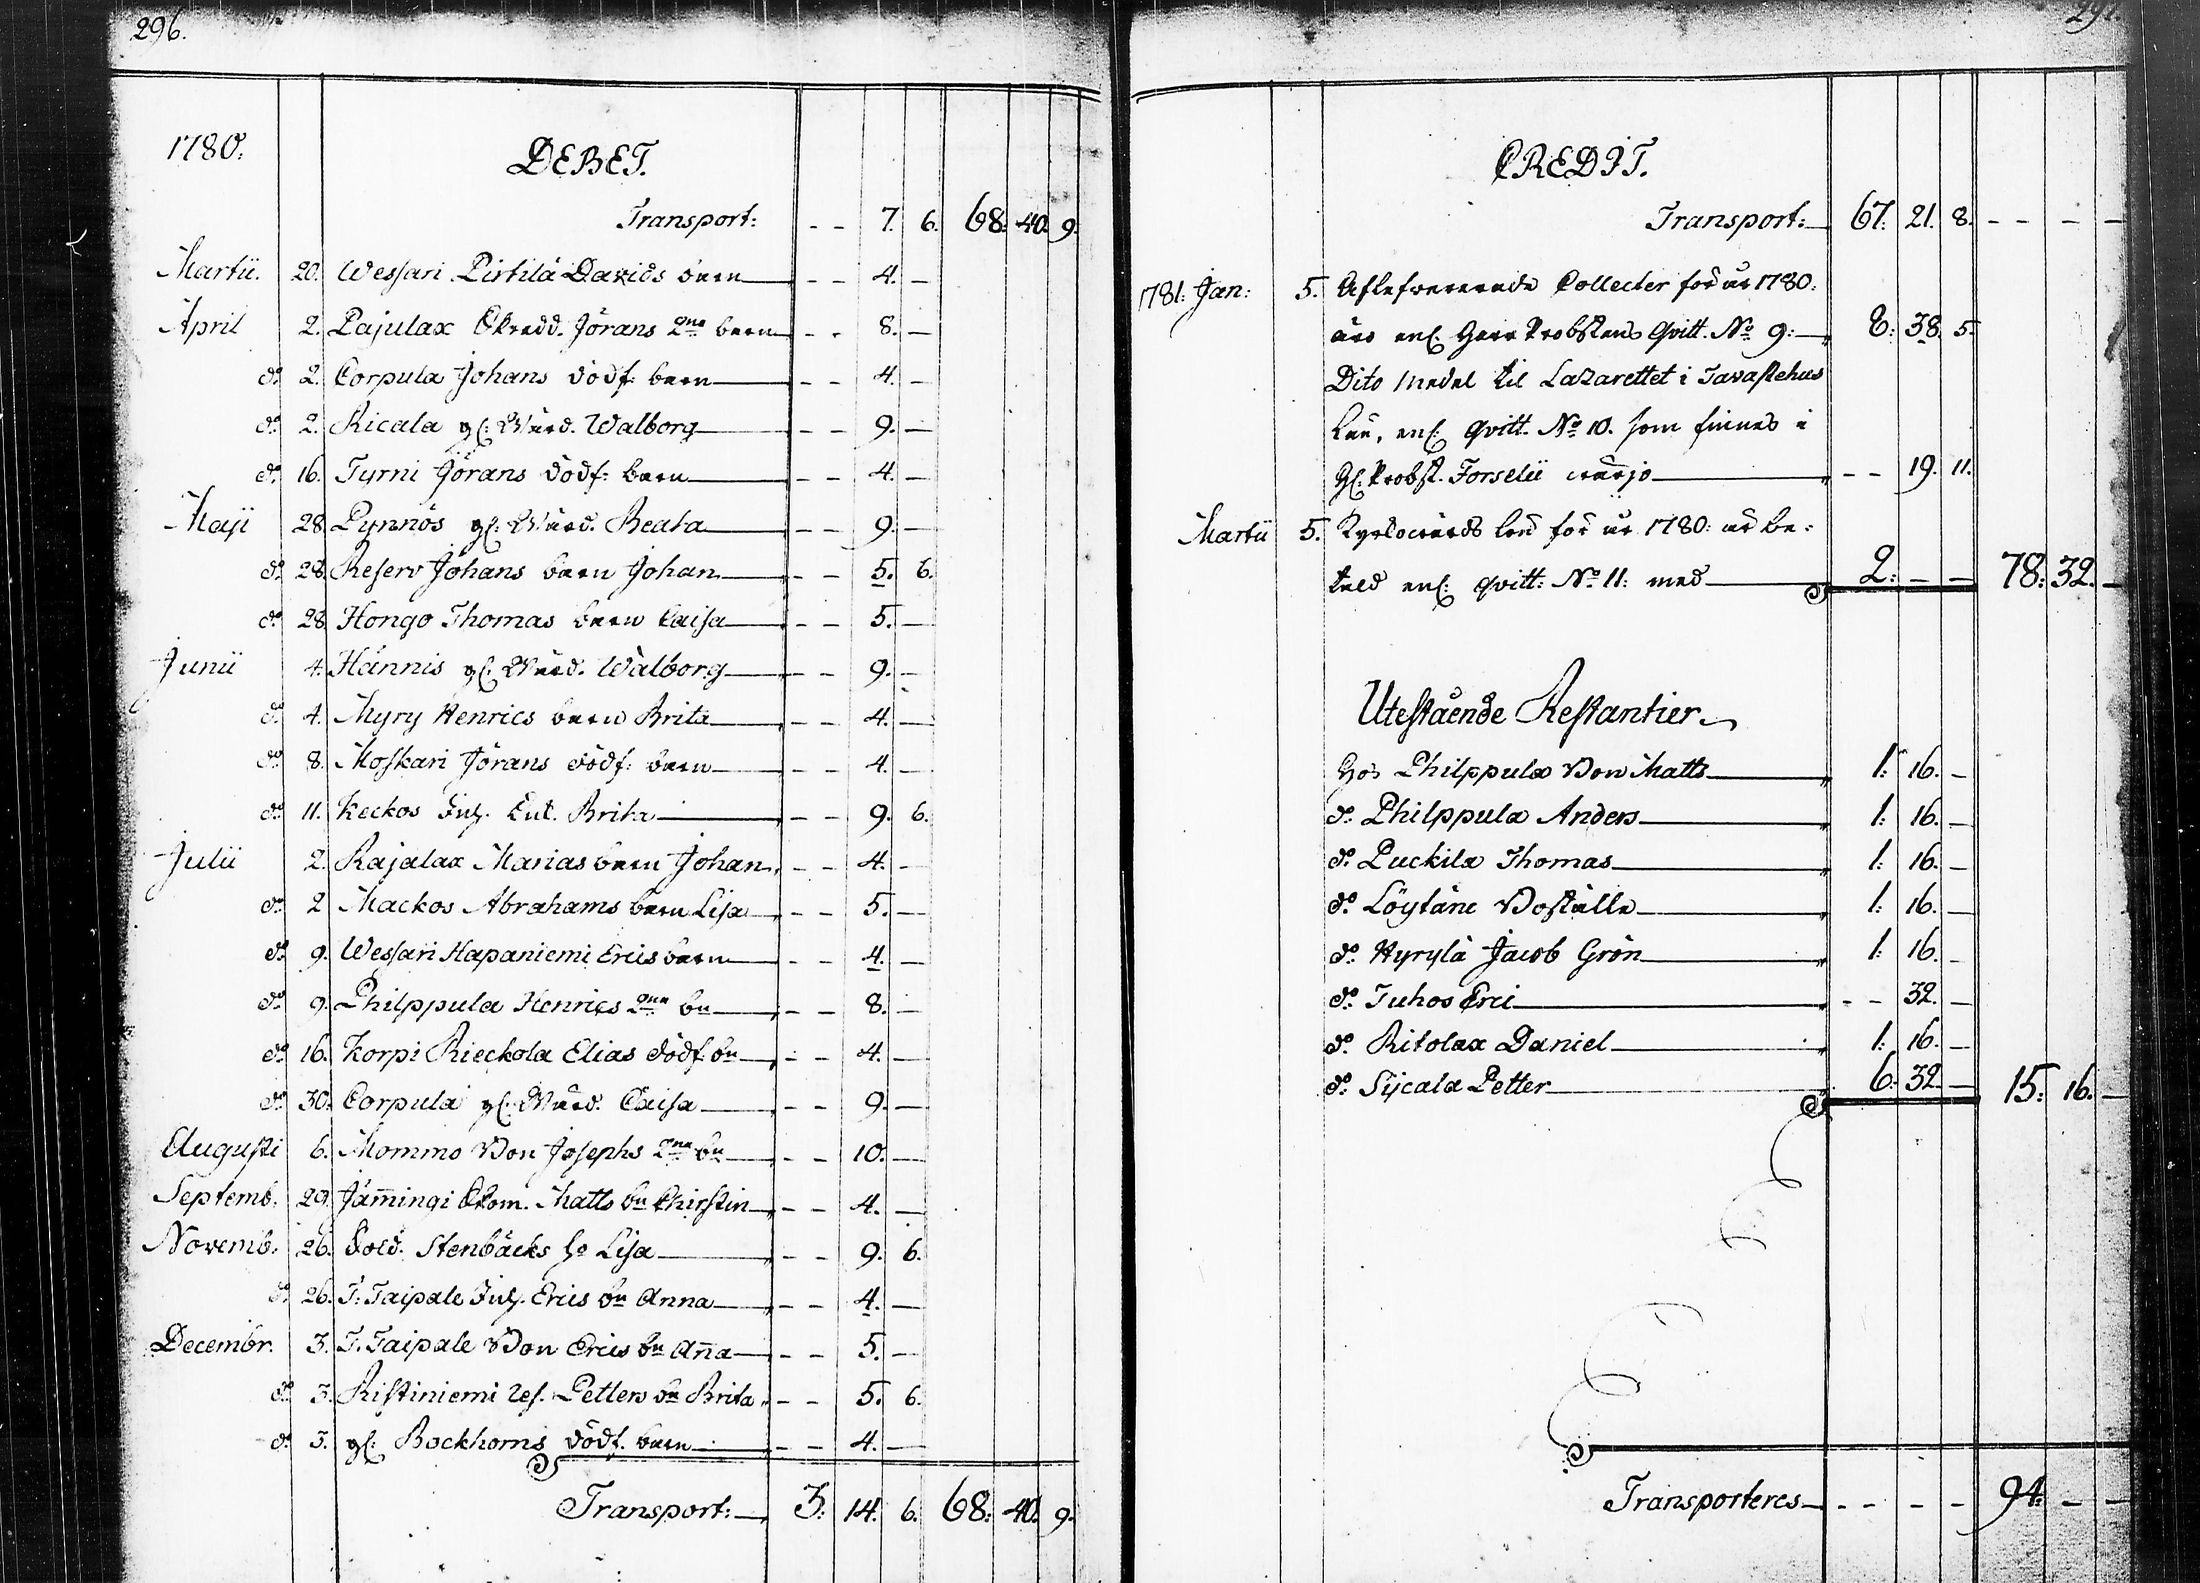 296.
1780.
DEBET.
Transport: - - 7. 6. 68: 40. 9.
Martii. 20. Wessari Pirtilä Davids barn - - 4. -
April 2. Pajulax Skredd. Jörans 2ne barn - - 8. -
do. 2. Corpula Johans dödf: barn - - 4. -
do. 2. Ricala gl: Wärd. Walborg - - 9. -
do. 16. Tyrni Jörans dödf: barn - - 4. -
Maji 28. Pynnös gl: Wärd. Beata - - 9. -
do. 28. Reserv Johans barn Johan - - 5. 6.
do. 28. Hongo Thomas barn Caisa - - 5. -
Junii 4. Hännis gl: Wärd. Walborg - - 9. -
do. 4. Myry Henrics barn Brita - - 4. -
do. 8. Moskari Jörans dödf: barn - - 4. -
do. 11. Keckos Inh. Brita - - 9. 6.
Julii 2. Rajalax Marias barn Johan - - 4. -
do. 2 Mackos Abrahams barn Lisa - - 5. -
do. 9. Wessari Hapaniemi Erics barn - - 4. -
do. 9. Philppula Henrics 2ne bn - - 8. -
do. 16. Korpi Rieckola Elias dödf. bn - - 4. -
do. 30. Corpula gl: Wärd. Caisa - - 9. -
Augusti 6. Mommo Bon Josephs 2ne bn - - 10. -
Septemb. 29. Jämingi Skom. Matts bn Chirstin - - 4. -
Novemb. 26. Sold. Stenbäcks ho Lisa - - 9. 6.
do. 26. T: Taipale Inh. Erics bn Anna - - 4. -
Decembr. 3. T. Taipale Bon Erics bn Anna - - 5. -
do. 3. Ristiniemi Res. Petters bn Brita - - 5. 6.
do. 3. gl: Bockhorns dödf. barn - - 4. -
Transport: 3: 14. 6. 68: 40. 9.
297.
CREDIT.
Transport: 67. 21. 8. - - - -
1781: Jan: 5. Aflefwererade Collecter för år 1780:
äro enl. Herr Probstens Qvitt. No 9: 8: 38. 5.
Dito Medel til Lazarettet i Tavastehus
Län, enl: qvitt. No 10. som finnes i
gl: Probst. Forselii wärjo - - 19. 11.
Martii 5. Kyrkowärds lön för år 1780: är be-
tald enl: qvitt: No 11: med 2: - - 78: 32. -
Utestående Restantier
hos Philppula Bon Matts 1: 16. -
do. Philppula Anders 1: 16. -
do. Puckila Thomas 1: 16. -
do. Löytäne Boställe 1: 16. -
do. Hyrylä Jacob Grön 1: 16. -
do. Juhos Eric - - 32. -
do. Ritolax Daniel 1: 16. -
do. Sijcala Petter 6: 32. - 15: 16. -
Transporteres - - - - 94: - -